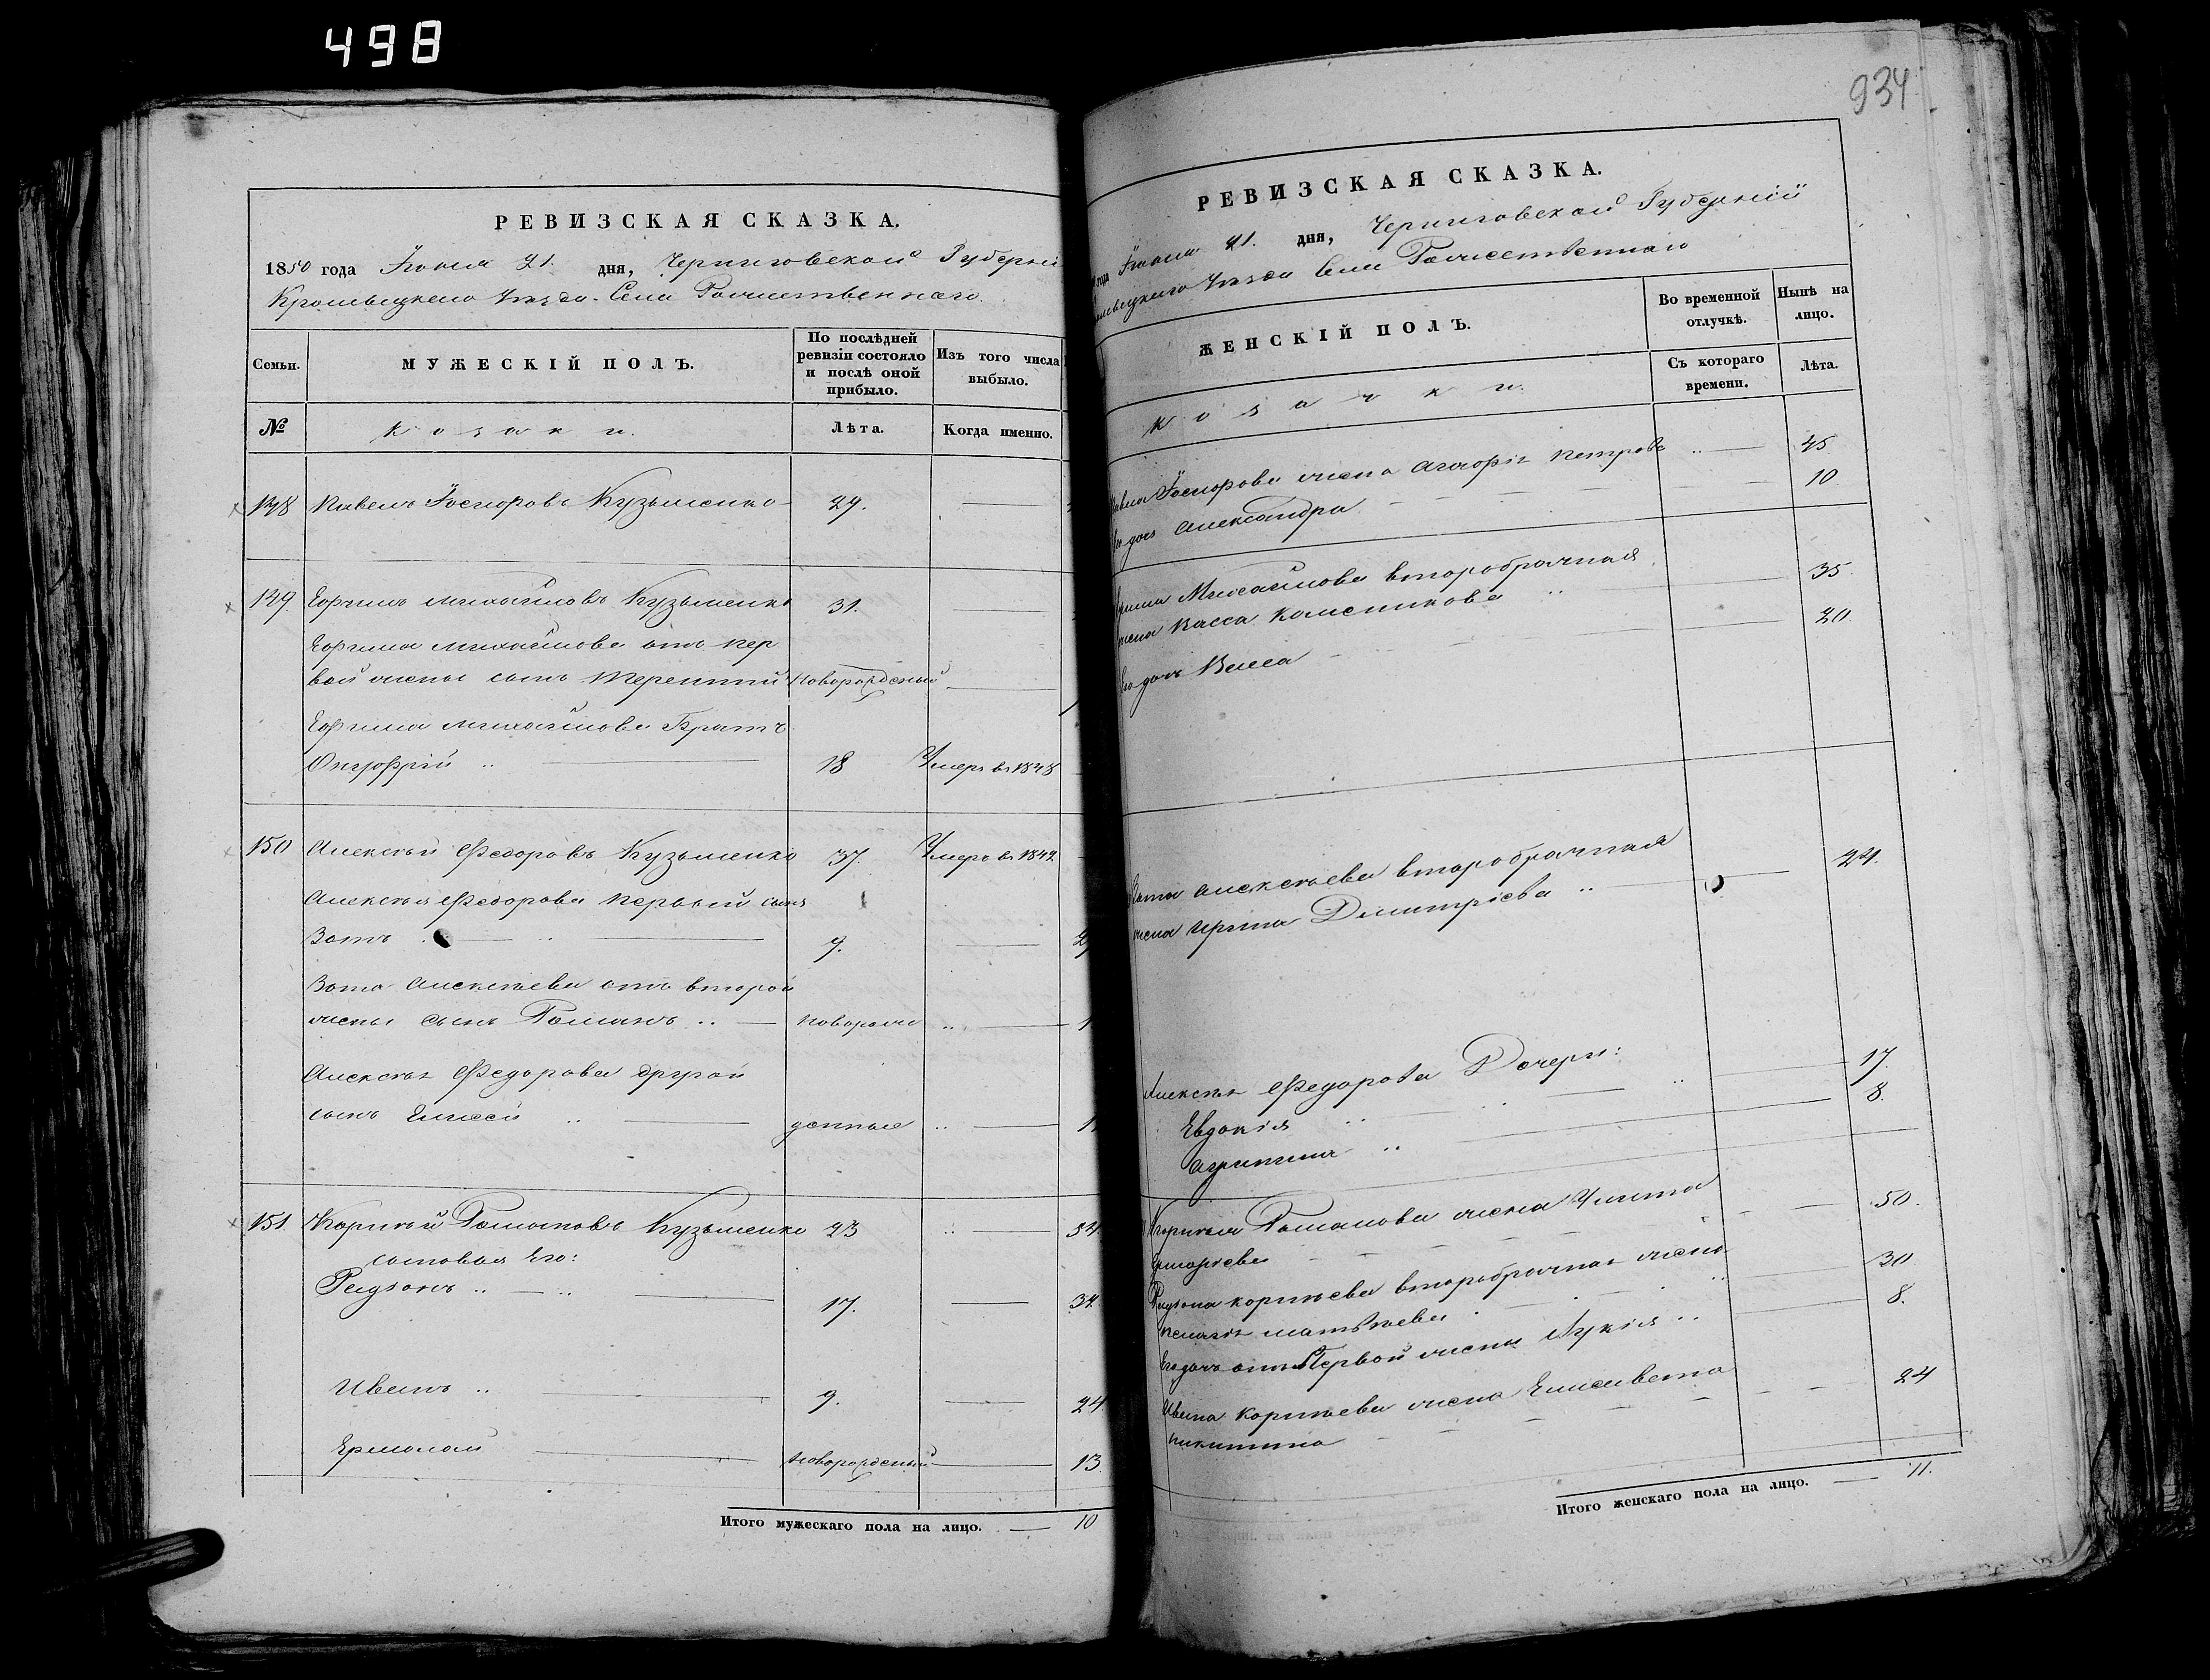 498
РЕВИЗСКАЯ СКАЗКА.
1850 года Іюля 21. дня, Черниговской Губерніи
Кролевецкого Уезда Села Рожественнаго.
Семьи.
МУЖЕСКІЙ ПОЛЪ.
По послѣдней
ревизіи состояло
и послѣ оной
прибыло.
Изъ того числа
выбыло.
№
Козаки.
Лѣта.
Когда именно.
148 Павелъ Кузьменко 29.
149 Ефимъ Михайловъ Кузьменко 31.
Ефима Михайлова отъ пер
вой жены сынъ Терентій Новорожденый
Ефима Михайлова Братъ
Онуфрій 18 Умеръ въ 1848
150 Алексѣй Федоровъ Кузьменко 37. Умеръ въ 1842
Алексѣя Федорова первый сынъ
Зотъ 9.
Зота Алексѣева отъ второй
жены сынъ Романъ новорож
Алексѣя Федорова другой
сынъ Елисей денные
151. Корнѣй Романовъ Кузьменко 23
сыновья Его:
Родіонъ 17.
Иванъ 9. 24.
Ермолай Новорожденый 13.
Итого мужескаго пола на лицо. 10
934
РЕВИЗСКАЯ СКАЗКА.
года Іюля 21. дня, Черниговской Губерніи
Уезда Села Рожественнаго
ЖЕНСКІЙ ПОЛЪ.
Во временной
отлучкѣ.
Нынѣ на
лицо.
Съ котораго
времени.
Лѣта.
Козачки.
жена Петрова 45
дочь Александра 10.
Михайлова второбрачная
жена Васса 35.
дочь 20.
Зота Алексѣева второбрачная
жена Ирина Димитріева 24.
Алексѣя Федорова Дочери:
Евдокія 17.
Агрипина 8.
Корнѣя Романова жена 50.
Родіона Корнѣева второбрачная жена
Пелагія Матвѣева 30
Его дочь отъ Первой жены Лукія 8.
Ивана Корнѣева жена Елисавета
Никитина 24
Итого женскаго пола на лицо. 11.